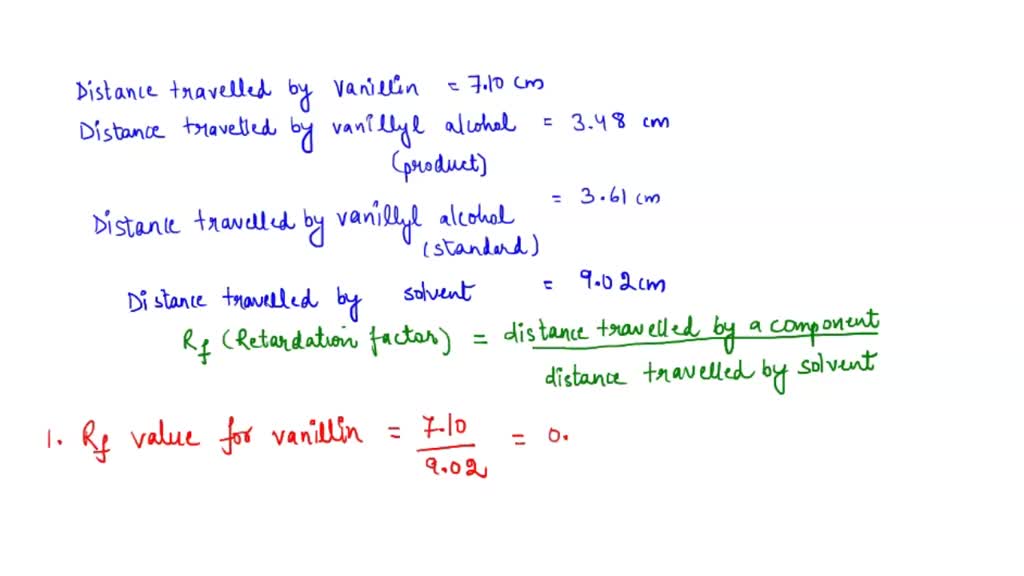 Distance travelled by vanillin = 7.10 cm
Distance travelled by vanillyl alcohol = 3.48 cm
(product)
Distance travelled by vanillyl alcohol = 3.61 cm
(standard)
Distance travelled by solvent = 9.02 cm
Rf (Retardation factor) = distance travelled by a component
distance travelled by solvent
1. Rf value for vanillin = 7.10 = 0.
9.02